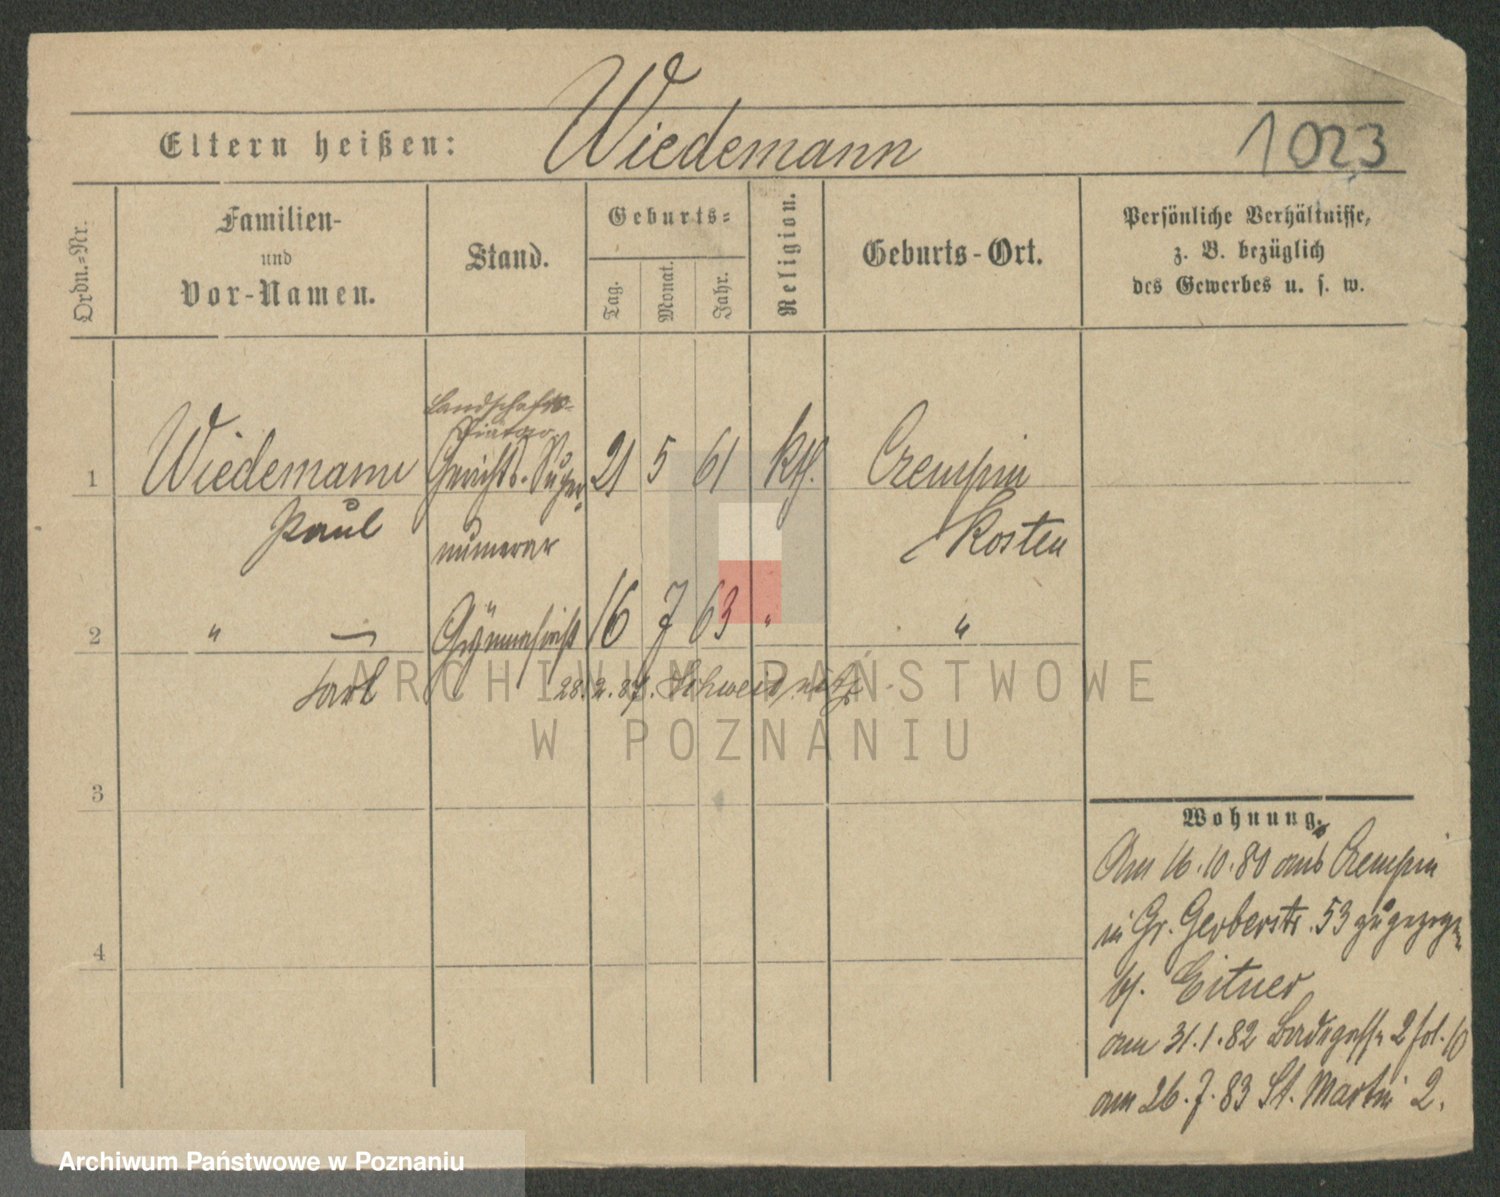 Wiedemann
Eltern heißen:
1023
Ordn.-Nr.
Familien-
und
Vor-Namen.
Stand.
Geburts-
Tag.
Monat.
Jahr.
Religion.
Geburts-Ort.
Persönliche Verhältnisse,
z. B. bezüglich
des Gewerbes u. s. w.
Landschafts-
1 Wiedemann Gerichts-Super- 21 5 61 kth. Czempin
Paul numerar Kosten
2 " — Gymnasiast 16 7 63 " "
Karl 28.2.87.
ARCHIWUM PAŃSTWOWE
W POZNANIU
3
4
Wohnung.
Am 16.10.80 aus Czempin
in Gr. Gerberstr. 53 zugezogen
bf. Eitner
am 31.1.82 Badegasse 2 fol. 10
am 26.7.83 St. Martin 2.
Archiwum Państwowe w Poznaniu